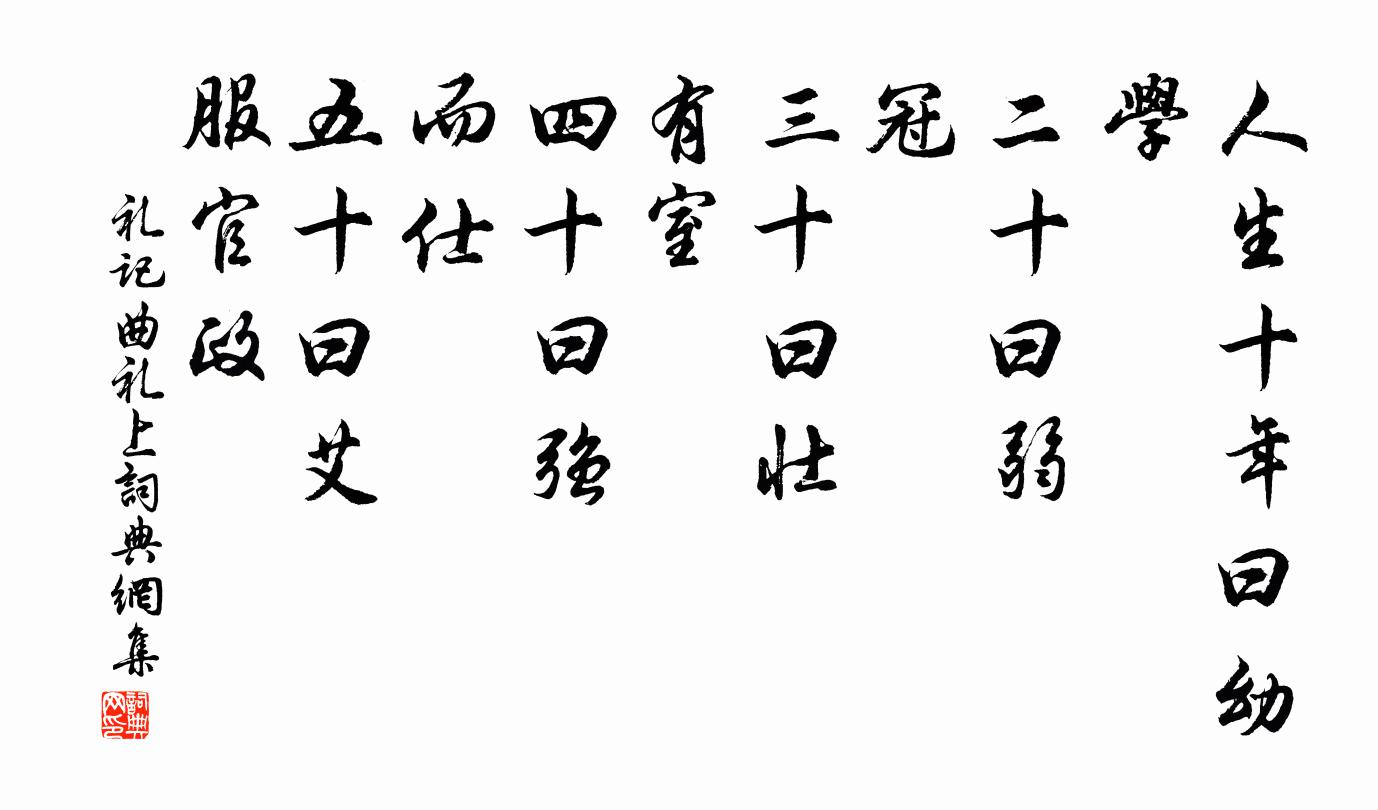 人生十年曰幼
學
二十曰弱
冠
三十曰壯
有室
四十曰強
而仕
五十曰艾
服官政
礼记曲礼上詞典網集
詞典
网印